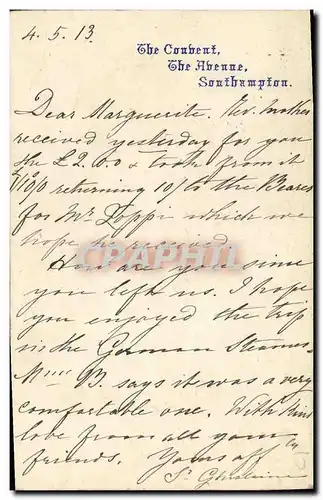 4.5.13.
The Convent,
The Avenue,
Southampton.
Dear Marguerite. Rev. Mother
received yesterday for you
the £2.0.0 & took from it
10/0 returning 10/ to the Bearer
for Mr Loppi which we
hope he received.
How are you since
you left us. I hope
you enjoyed the trip
in the German Steamer
Mme B. says it was a very
comfortable one. With kind
love from all your
friends. Yours aff
Sr
CPARAMA